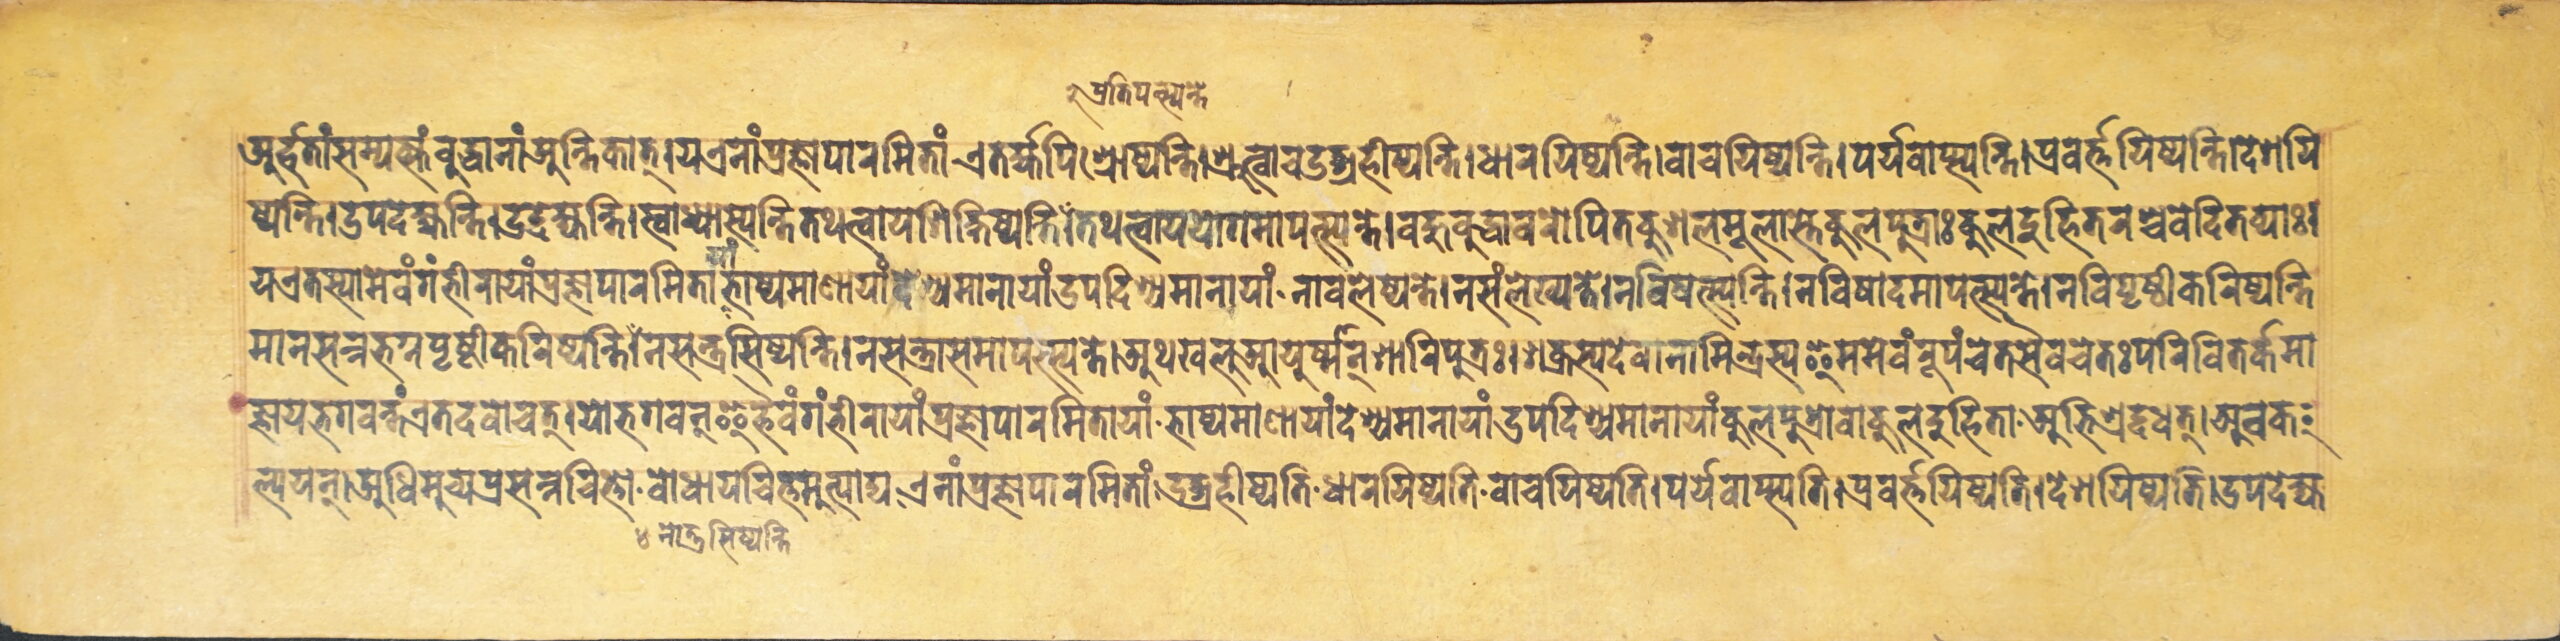 २ प्रतिपत्स्यन्ते
अर्हतां सम्यक्संबुद्धानां अन्तिकात्। य एनां प्रज्ञापारमितां एतर्ह्यपि श्रोष्यन्ति। श्रुत्वा चउद्ग्रहीष्यन्ति। धारयिष्यन्ति। वाचयिष्यन्ति। पर्यवाप्स्यन्ति। प्रवर्त्तयिष्यन्ति। देशयि
ष्यन्ति। उपदेक्ष्यन्ति। उद्देक्ष्यन्ति। स्वाध्यास्यन्ति तथत्वाय शिक्षिष्यन्ति। तथत्वाय योगमापत्स्यन्ते। बहुबुद्धावरोपितकुशलमूलास्ते कुलपुत्राः कुलदुहितरश्च वेदितव्याः।
य एतस्यामेवं गंभीरायां प्रज्ञापारमितायां भाष्यमाणायां देश्यमानायां उपदिश्यमानायां नावलेष्यन्ते। न संलेख्यन्ते। न विषत्स्यन्ति। न विषादमापत्स्यन्ते। न विपृष्ठीकरिष्यन्ति
मानसन्न भग्नपृष्ठीकरिष्यन्ति। न सन्त्रसिष्यन्ति। न सन्त्रासमापत्स्यन्ते। अथ खलु आयुर्ष्मन् शारिपुत्रः। शक्रस्य देवानामिन्द्रस्य इममेवंरूपं चेतसैव चेतःपरिवितर्कमा
ज्ञाय भगवन्तं एतदवोचत्। यो भगवन् इहैवं गंभीरायां प्रज्ञापारमितायां भाष्यमाणायां देश्यमानायां उपदिश्यमानायां कुलपुत्रो वा कुलदुहिता अभिश्रद्दधत्। अवक
ल्पयन्। अधिमुच्य प्रसन्नचित्तो बोधाय चित्तमुत्पाद्य एनां प्रज्ञापारमितां उद्ग्रहीष्यति धारयिष्यति वाचयिष्यति। पर्यवाप्स्यति। प्रवर्त्तयिष्यति। देशयिष्यति। उपदेक्ष्य
४ नोत्त्रसिष्यन्ति